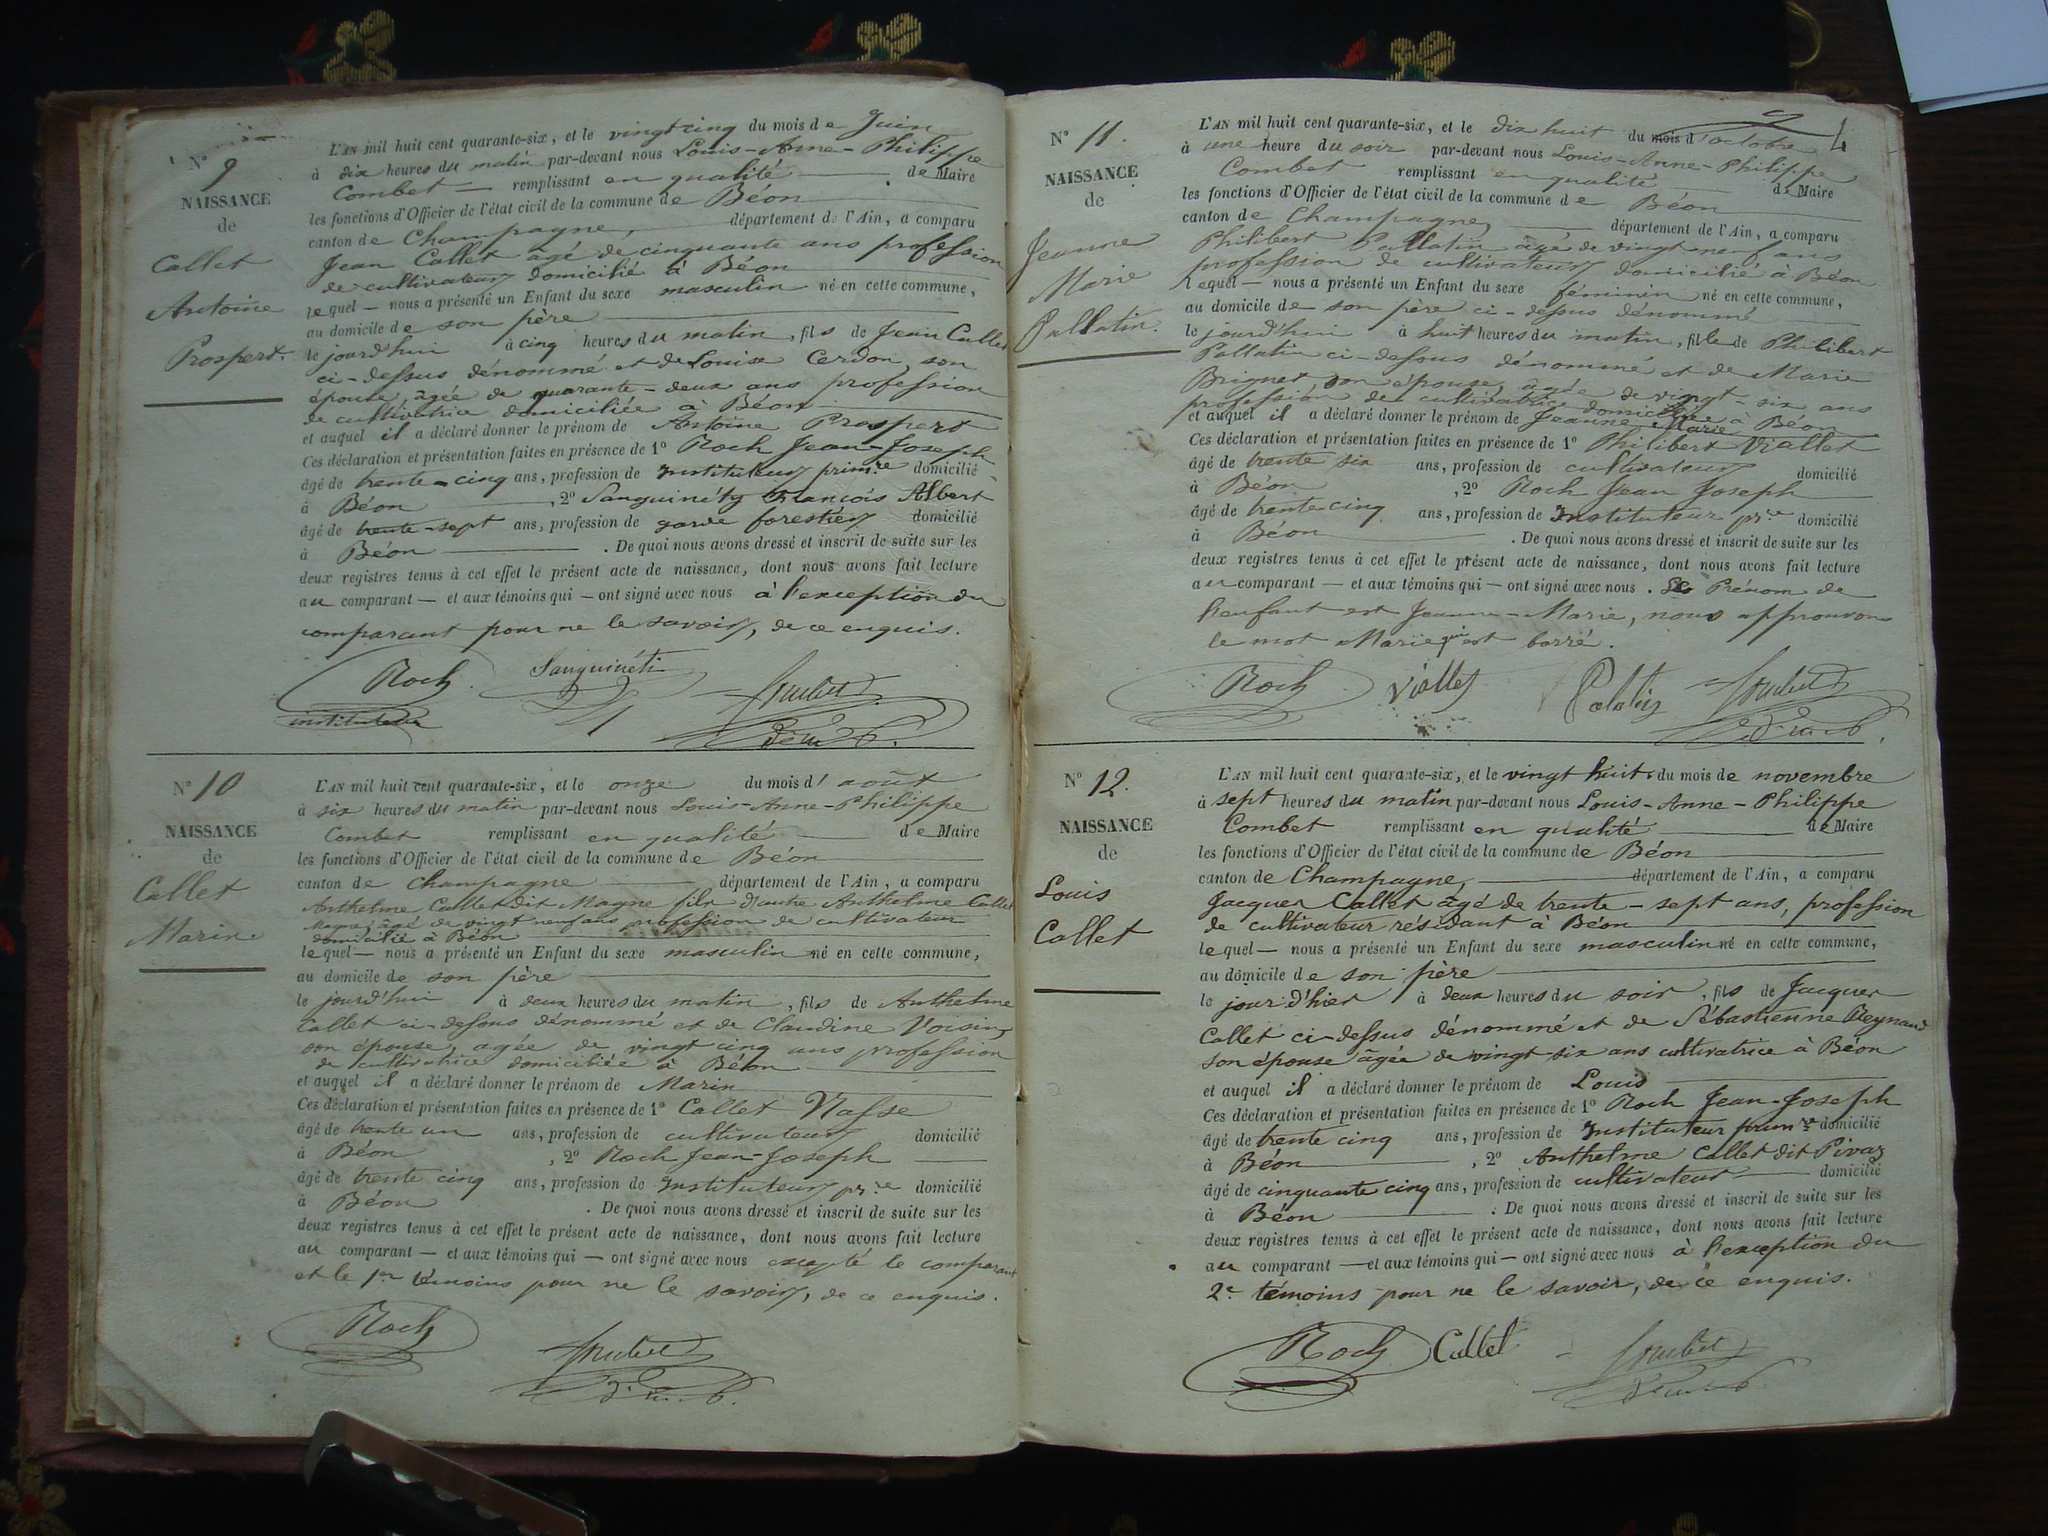 N° 9
NAISSANCE
de
Callet
Antoine
Prospert.
L'AN mil huit cent quarante-six, et le vingt cinq du mois de Juin
à dix heures du matin par-devant nous Louis-Anne-Philippe
Combet remplissant en qualité de Maire
les fonctions d'Officier de l'état civil de la commune de Béon
canton de Champagne, département de l'Ain, a comparu
Jean Callet agé de cinquante ans profession
de cultivateur domicilié à Béon
lequel nous a présenté un Enfant du sexe masculin né en cette commune,
au domicile de son père
le jourd'hui à cinq heures du matin, fils de Jean Callet
ci-dessus dénommé et de Louise Cerdon, son
épouse, agée de quarante-deux ans profession
de cultivatrice domiciliée à Béon
et auquel il a déclaré donner le prénom de Antoine Prospert
Ces déclaration et présentation faites en présence de 1° Roch Jean-Joseph
âgé de trente-cinq ans, profession de Instituteur prim.re domicilié
à Béon, 2° Sanguinéty François Albert
âgé de trente-sept ans, profession de garde forestier domicilié
à Béon. De quoi nous avons dressé et inscrit de suite sur les
deux registres tenus à cet effet le présent acte de naissance, dont nous avons fait lecture
au comparant — et aux témoins qui — ont signé avec nous à l'exception du
comparant pour ne le savoir, de ce enquis.
Roch Sanguinéti
instituteur
N° 10
NAISSANCE
de
Callet
Marin
L'AN mil huit cent quarante-six, et le onze du mois d'août
à six heures du matin par-devant nous Louis-Anne-Philippe
Combet remplissant en qualité de Maire
les fonctions d'Officier de l'état civil de la commune de Béon
canton de Champagne département de l'Ain, a comparu
Anthelme Callet dit Magne fils d'autre Anthelme Callet
Magne, âgé de vingt neuf ans profession de cultivateur
domicilié à Béon
lequel — nous a présenté un Enfant du sexe masculin né en cette commune,
au domicile de son père
le jourd'hui à deux heures du matin, fils de Anthelme
Callet ci-dessus dénommé et de Claudine Voisin,
son épouse, agée de vingt cinq ans profession
de cultivatrice domiciliée à Béon
et auquel il a déclaré donner le prénom de Marin
Ces déclaration et présentation faites en présence de 1° Callet
âgé de trente un ans, profession de cultivateur domicilié
à Béon, 2° Roch Jean-Joseph
âgé de trente cinq ans, profession de Instituteur pr.re domicilié
à Béon. De quoi nous avons dressé et inscrit de suite sur les
deux registres tenus à cet effet le présent acte de naissance, dont nous avons fait lecture
au comparant — et aux témoins qui — ont signé avec nous excepté le comparant
et le 1er témoins pour ne le savoir, de ce enquis.
Roch
4
N° 11.
NAISSANCE
de
Jeanne
Marie
Pallatin.
L'AN mil huit cent quarante-six, et le dix huit du mois d'octobre
à une heure du soir par-devant nous Louis-Anne-Philippe
Combet remplissant en qualité de Maire
les fonctions d'Officier de l'état civil de la commune de Béon
canton de Champagne, département de l'Ain, a comparu
Philibert Pallatin âgé de vingt neuf ans
profession de cultivateur domicilié à Béon
lequel — nous a présenté un Enfant du sexe féminin né en cette commune,
au domicile de son père ci-dessus dénommé
le jourd'hui à huit heures du matin, fille de Philibert
Pallatin ci-dessus dénommé et de Marie
Brignet son épouse, agée de vingt-six ans
profession de cultivatrice domiciliée à Béon
et auquel il a déclaré donner le prénom de Jeanne Marie
Ces déclaration et présentation faites en présence de 1° Philibert Viallet
âgé de trente six ans, profession de cultivateur domicilié
à Béon, 2° Roch Jean Joseph
âgé de trente cinq ans, profession de Instituteur pr.re domicilié
à Béon. De quoi nous avons dressé et inscrit de suite sur les
deux registres tenus à cet effet le présent acte de naissance, dont nous avons fait lecture
au comparant — et aux témoins qui — ont signé avec nous. Le Prénom de
l'enfant est Jeanne-Marie, nous approuvons
le mot Marie qui est barré.
Roch Viallet Palatin
N° 12.
NAISSANCE
de
Louis
Callet
L'AN mil huit cent quarante-six, et le vingt huit du mois de novembre
à sept heures du matin par-devant nous Louis-Anne-Philippe
Combet remplissant en qualité de Maire
les fonctions d'Officier de l'état civil de la commune de Béon
canton de Champagne, département de l'Ain, a comparu
Jacques Callet âgé de trente-sept ans, profession
de cultivateur résidant à Béon
lequel — nous a présenté un Enfant du sexe masculin né en cette commune,
au domicile de son père
le jour d'hier à deux heures du soir, fils de Jacques
Callet ci-dessus dénommé et de Sébastienne Reynaud
son épouse âgée de vingt-six ans cultivatrice à Béon
et auquel il a déclaré donner le prénom de Louis
Ces déclaration et présentation faites en présence de 1° Roch Jean-Joseph
âgé de trente cinq ans, profession de Instituteur prim.re domicilié
à Béon, 2° Anthelme Callet dit Pivaz
âgé de cinquante cinq ans, profession de cultivateur domicilié
à Béon. De quoi nous avons dressé et inscrit de suite sur les
deux registres tenus à cet effet le présent acte de naissance, dont nous avons fait lecture
au comparant — et aux témoins qui — ont signé avec nous à l'exception du
2e témoins pour ne le savoir, de ce enquis.
Roch Callet